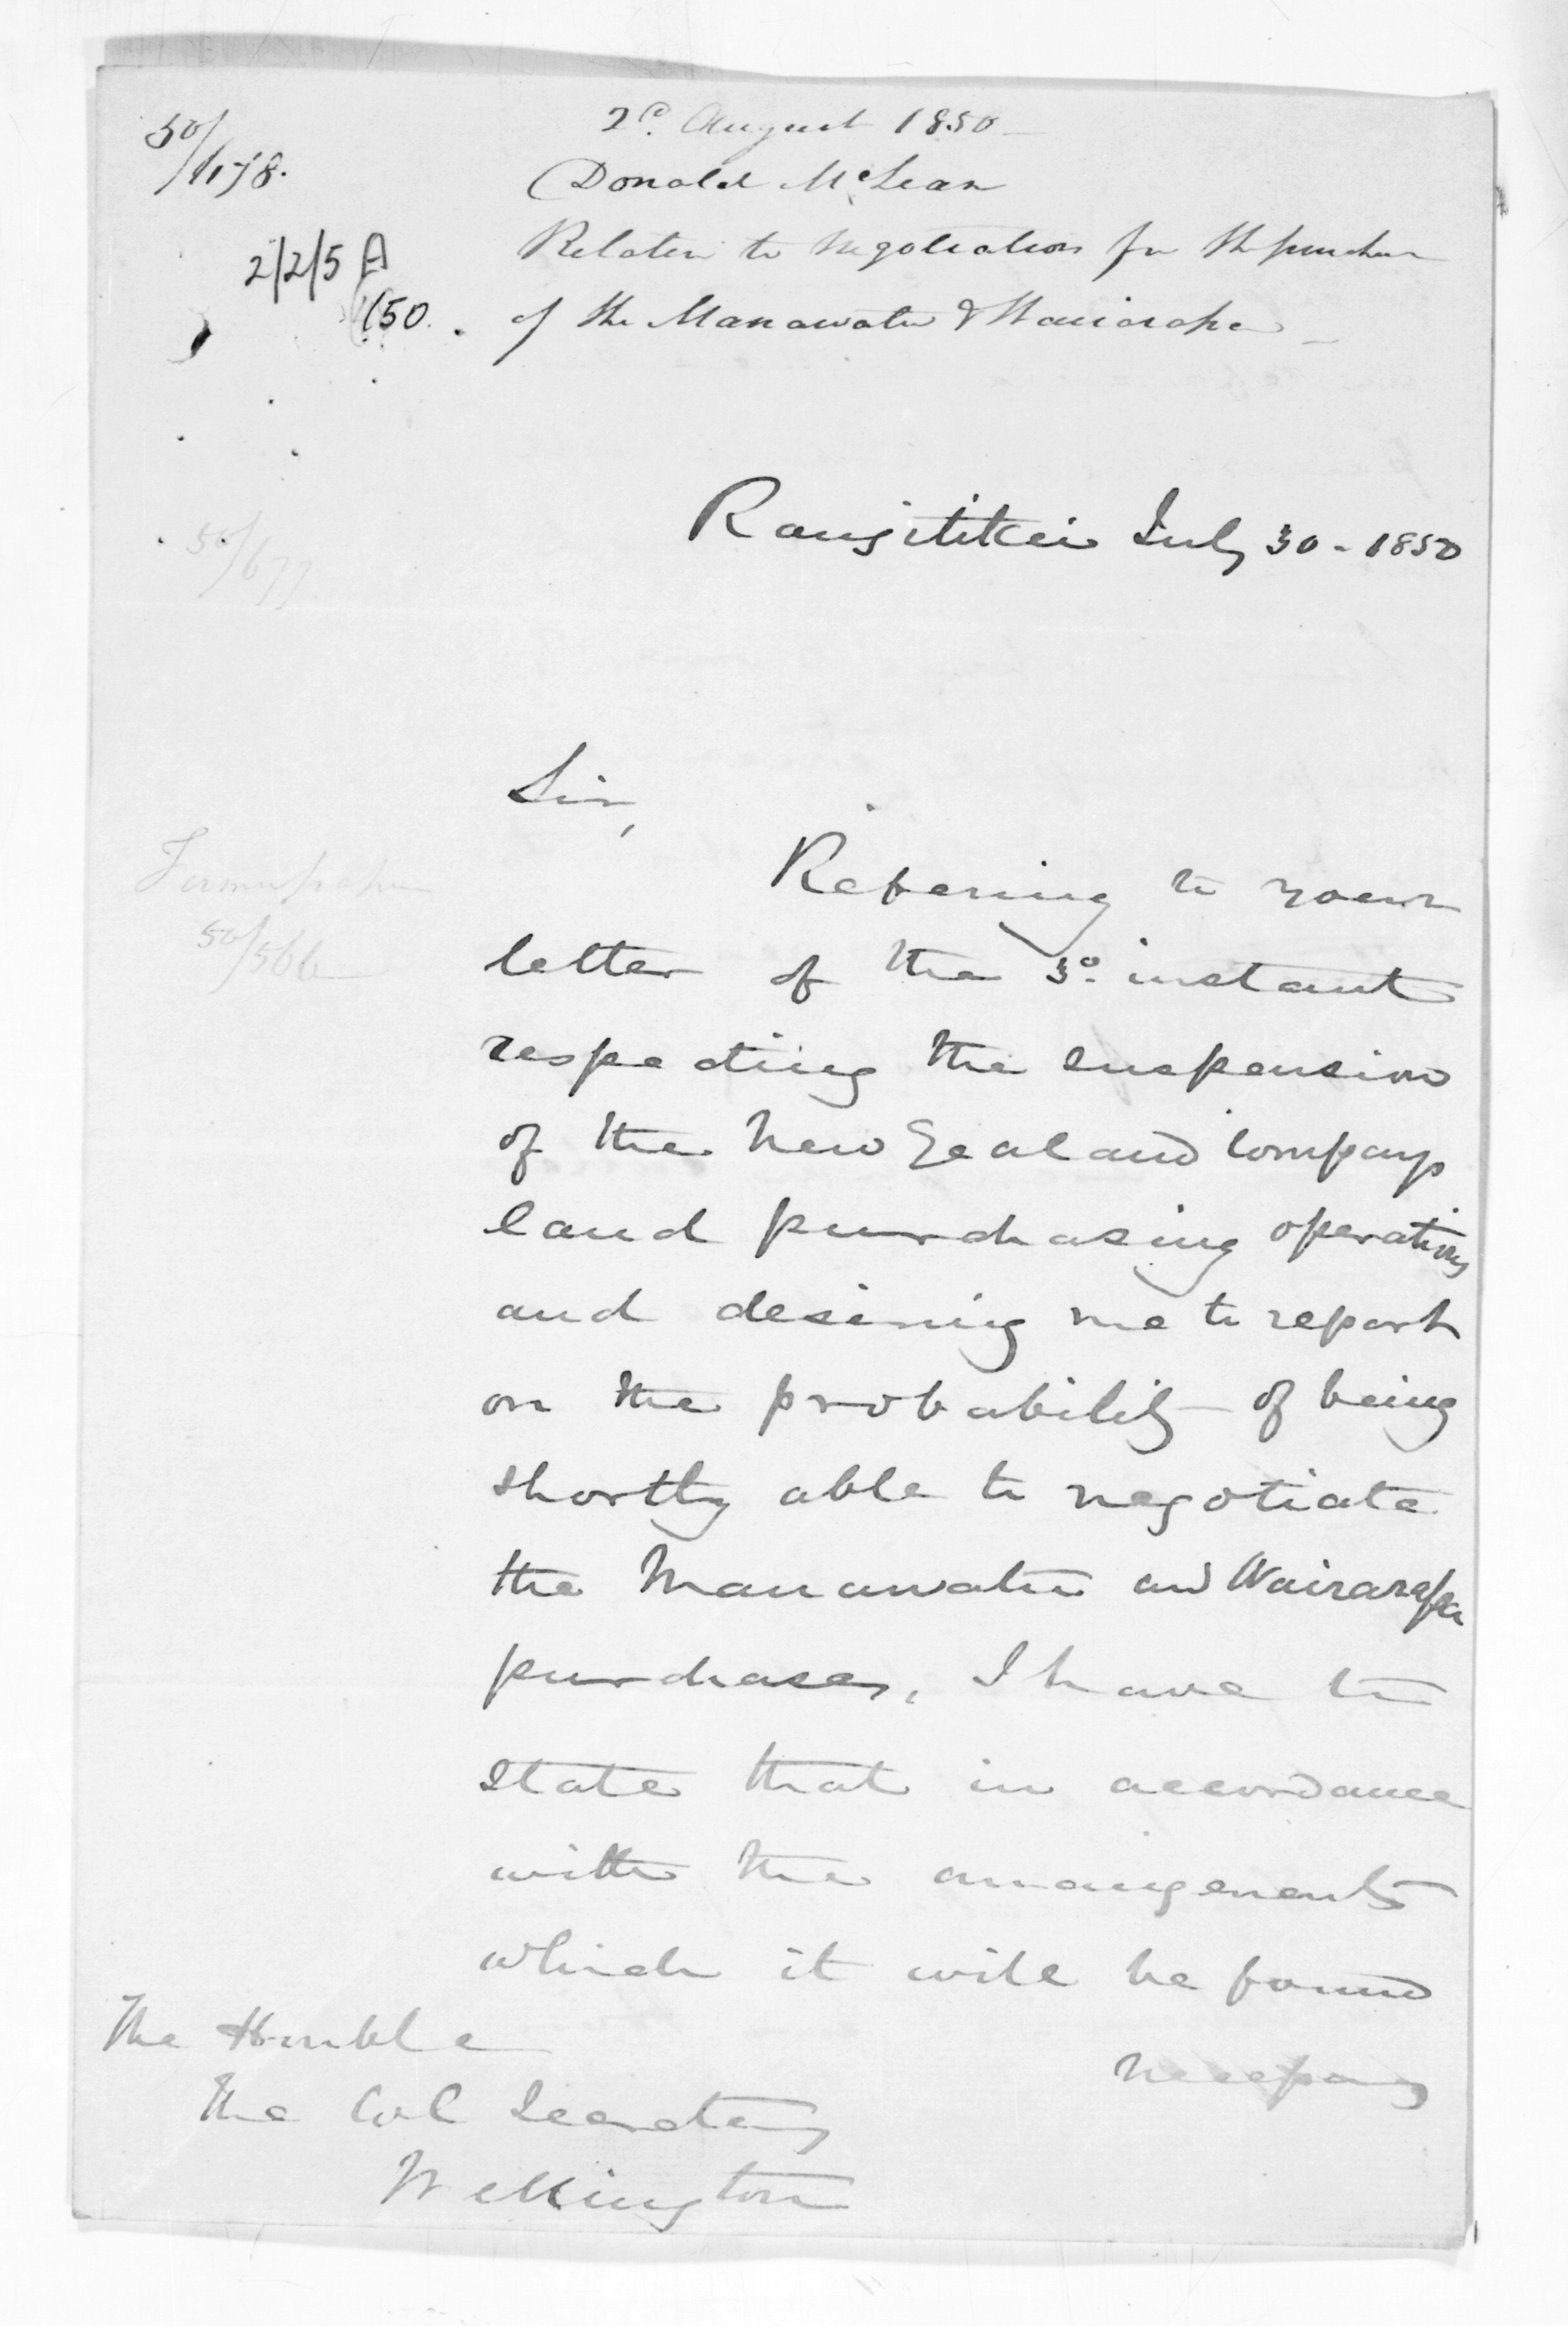 2d. August 1850
50/
2/2/5 A
Donald McLean
Relative to Negotiations for the purchase
(50.
of the Manawatu & Wairarapa
Rangitikei July 30 - 1850
50/677
Sir,
Refering to your
letter of the 3d. instant
50/566
respecting the suspension
of the New Zealand Companys
land purchasing operations
and desiring me to report
on the probability of being
shortly able to negotiate
the Manawatu and Wairarapa
purchases, I have to
state that in accordance
with the arrangements
which it will be found
necessary
The Honble
The Col Secretary
Wellington